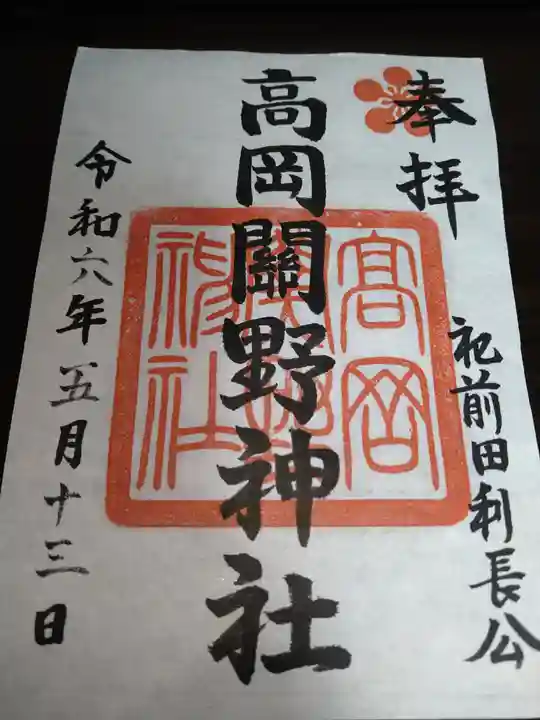 奉拝
祀前田利長公
高岡關野神社
高岡
關野
神社
令和六年五月十三日